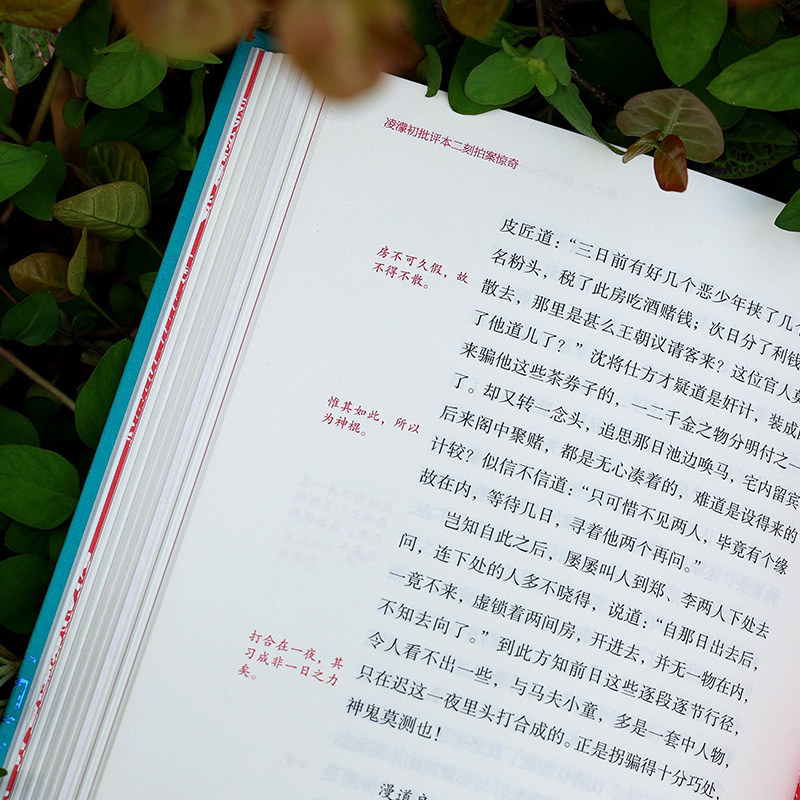 凌濛初批评本二刻拍案惊奇
皮匠道：“三日前有好几个恶少年挟了几个
名粉头，税了此房吃酒赌钱；次日分了利钱
散去，那里是甚么王朝议请客来？这位官人莫
了他道儿了？”沈将仕方才疑道是奸计，装成
来骗他这些茶券子的，一二千金之物分明付之一
了。却又转一念头，追思那日池边唤马，宅内留宾
后来阁中聚赌，都是无心凑着的，难道是设得来的
计较？似信不信道：“只可惜不见两人，毕竟有个缘
故在内，等待几日，寻着他两个再问。”
岂知自此之后，屡屡叫人到郑、李两人下处去
问，连下处的人多不晓得，说道：“自那日出去后，
一竟不来，虚锁着两间房，开进去，并无一物在内，
不知去向了。”到此方知前日这些逐段逐节行径，
令人看不出一些，与马夫小童，多是一套中人物，
只在迟这一夜里头打合成的。正是拐骗得十分巧处，
神鬼莫测也！
漫道良
房不可久假，故
不得不散。
惟其如此，所以
为神棍。
打合在一夜，其
习成非一日之力
矣。